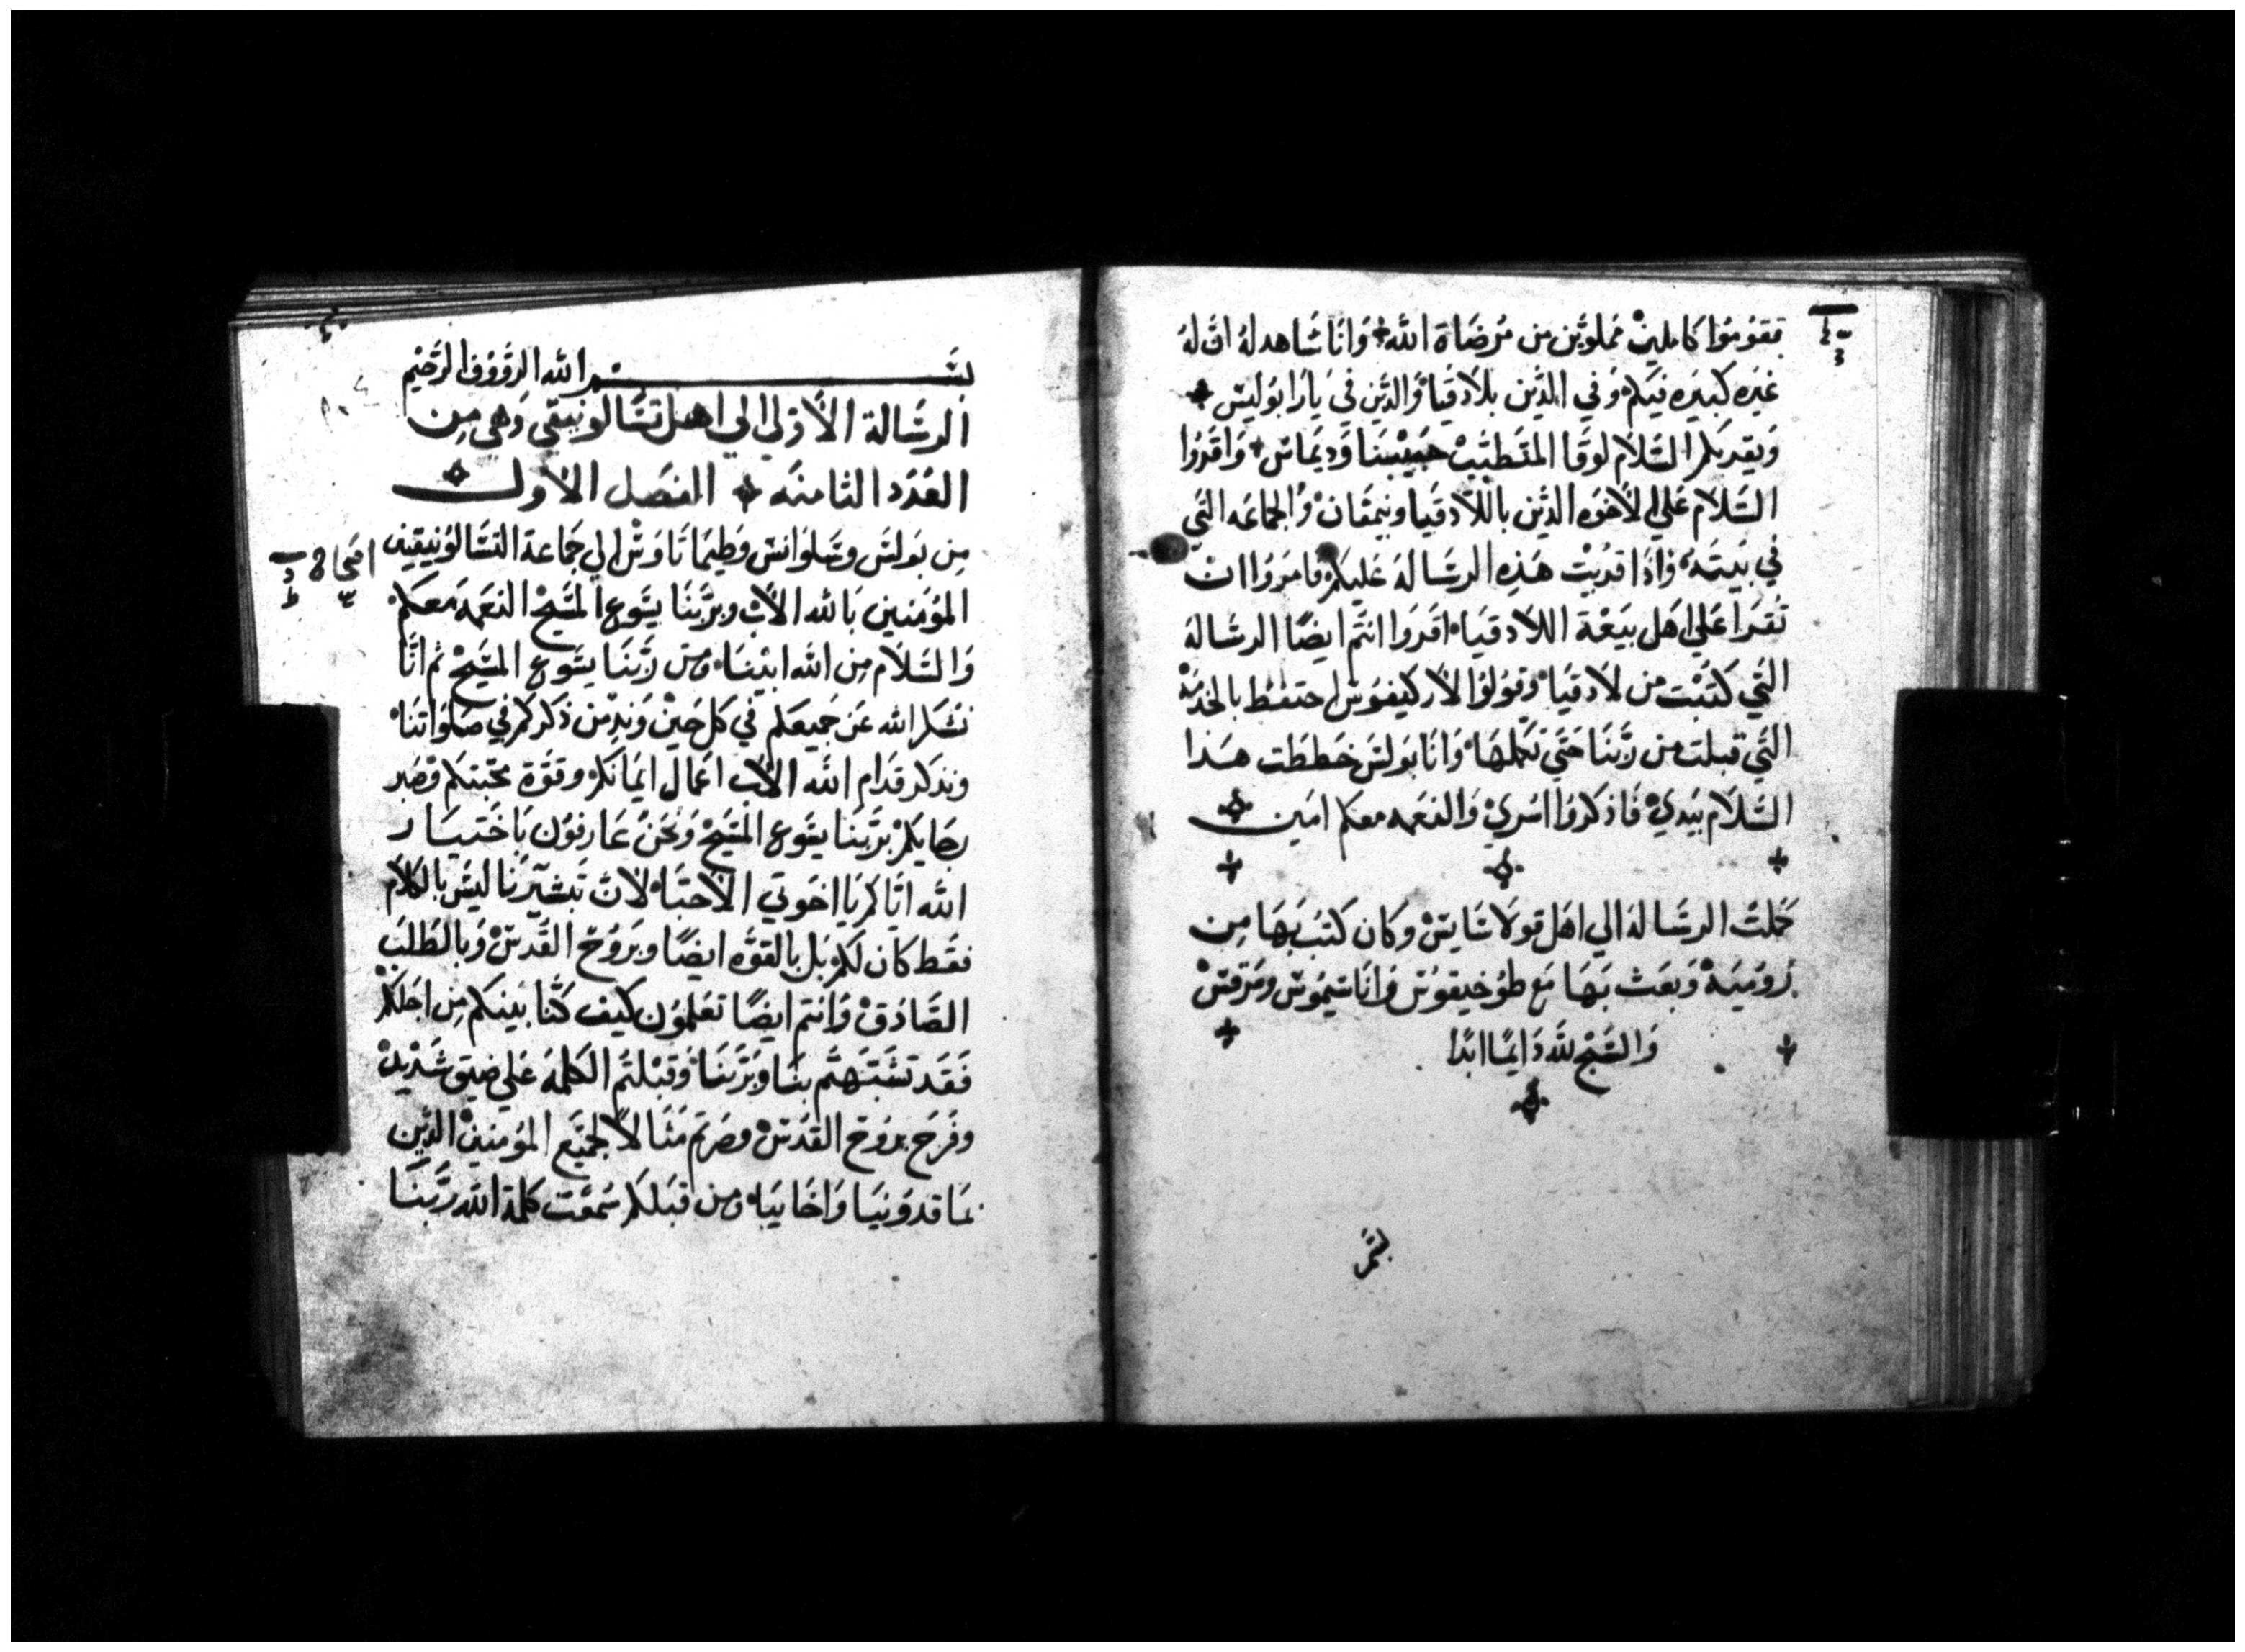 فقوموا كاملين مملوين من مرضاة الله وانا شاهد له ان له
غيره كبيره فيكم وفي الذين بلادقيا والذين في يارابوليس
ويقريكم السلام لوقا المتطبب حبيبنا وديماس واقروا
السلام علي الاخوه الذين باللادقيا ونيمفان والجماعه التي
في بيته واذا قريت هذه الرساله عليكم فامروا ان
تقرا علي اهل بيعة اللادقيا اقروا انتم ايضًا الرساله
التي كتبت من لادقيا وقولوا لاركيفوس احتفظ بالخدمة
التي قبلت من ربنا حتي تكملها وانا بولس خططت هذا
السلام بيدي فاذكروا اسري والنعمه معكم امين
كملت الرساله الي اهل قولاسايس وكان كتب بها من
روميه وبعث بها مع طوخيقوس واناسيموس ومرقس
والسبح لله دايمًا ابدًا
بسم الله الرووف الرحيم
الرسالة الاولي الي اهل تسالونيقي وهي من
العدد الثامنه الفصل الاول
من بولس وسلوانس وطيماتاوس الي جماعة التسالونيقين
المومنين بالله الاب وبربنا يسوع المسيح النعمه معكم
والسلام من الله ابينا ومن ربنا يسوع المسيح ثم انا
نشكر الله عن جميعكم في كل حين وندمن ذكركم في صلواتنا
ونذكر قدام الله الاب اعمال ايمانكم وقوة محبتكم وصبر
رجايكم بربنا يسوع المسيح ونحن عارفون باختيار
الله اياكم يا اخوتي الاحبا لان تبشيرنا ليس بالكلام
فقط كان لكم بل بالقوه ايضًا وبروح القدس وبالطلب
الصادق وانتم ايضًا تعلمون كيف كنا بينكم من اجلكم
فقد تشبهتم بنا وبربنا وقبلتم الكلمه علي ضيق شديد
وفرح بروح القدس وصرتم مثالًا لجميع المومنين الذين
بماقدونيا واخاييا ومن قبلكم سمعت كلمة الله ربنا